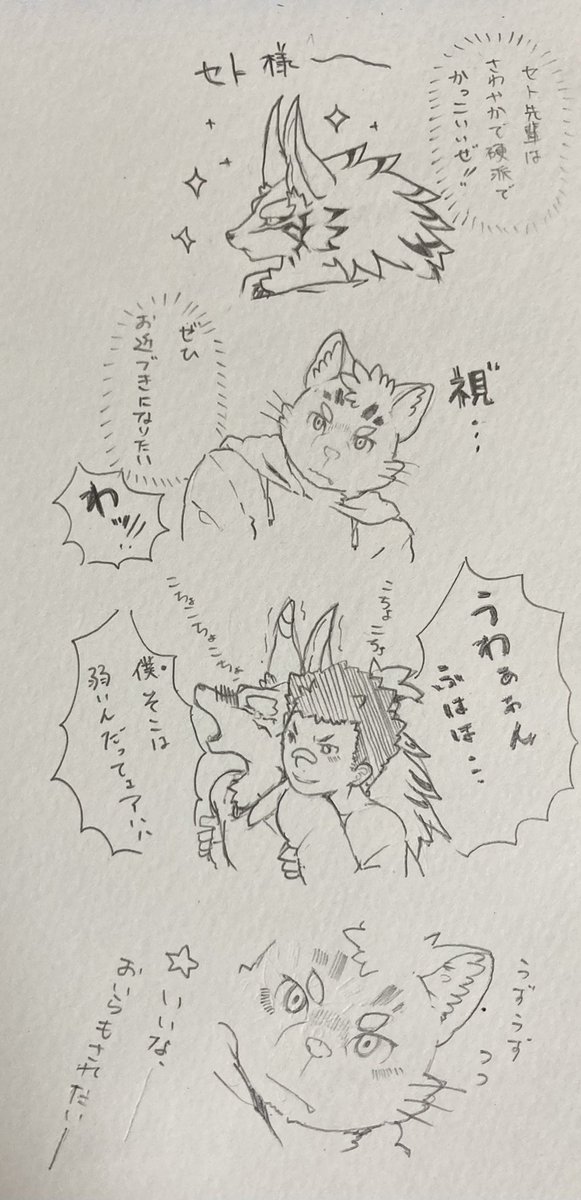 セト先輩は
さわやかで硬派で
かっこいいぜ!!
セト様
視"…
ぜひ
お近づきになりたい
わッ!!
うわぁぁん
ぶはは…
こちょこちょ
こちょこちょこちょ
僕そこは
弱いんだってェア…
うずうず
いいな、
おいらもされたい